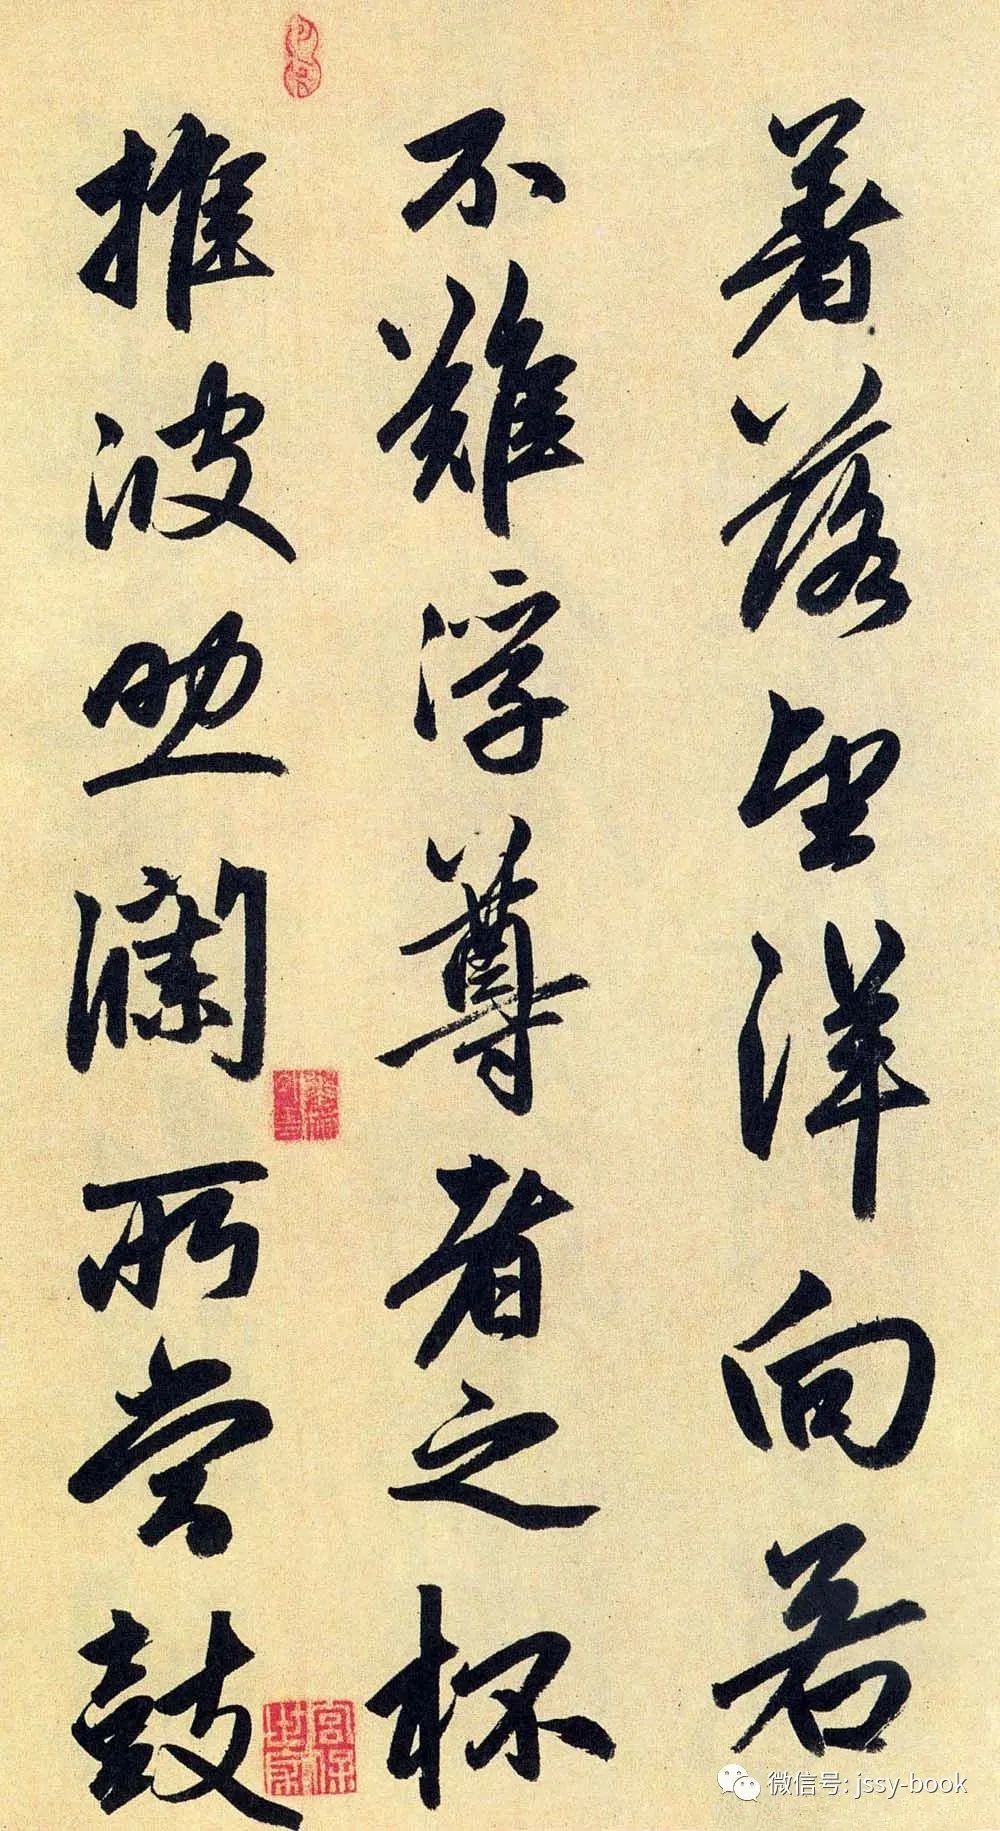 著落望洋向若
不難浮尊者之杯
推波助瀾所當鼓
宮保世家
微信号: jssy-book